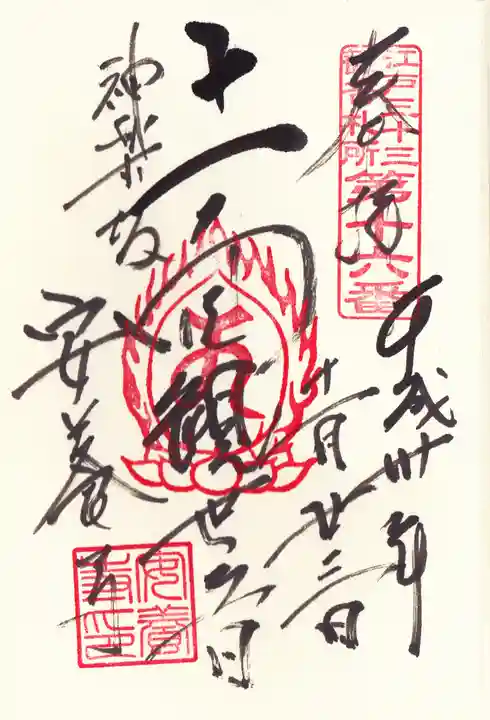 江戸三十三
観音札所
第十六番
奉拝
平成卅年
十一月廿三日
十一面觀世音
神楽坂
安養寺
安養寺印